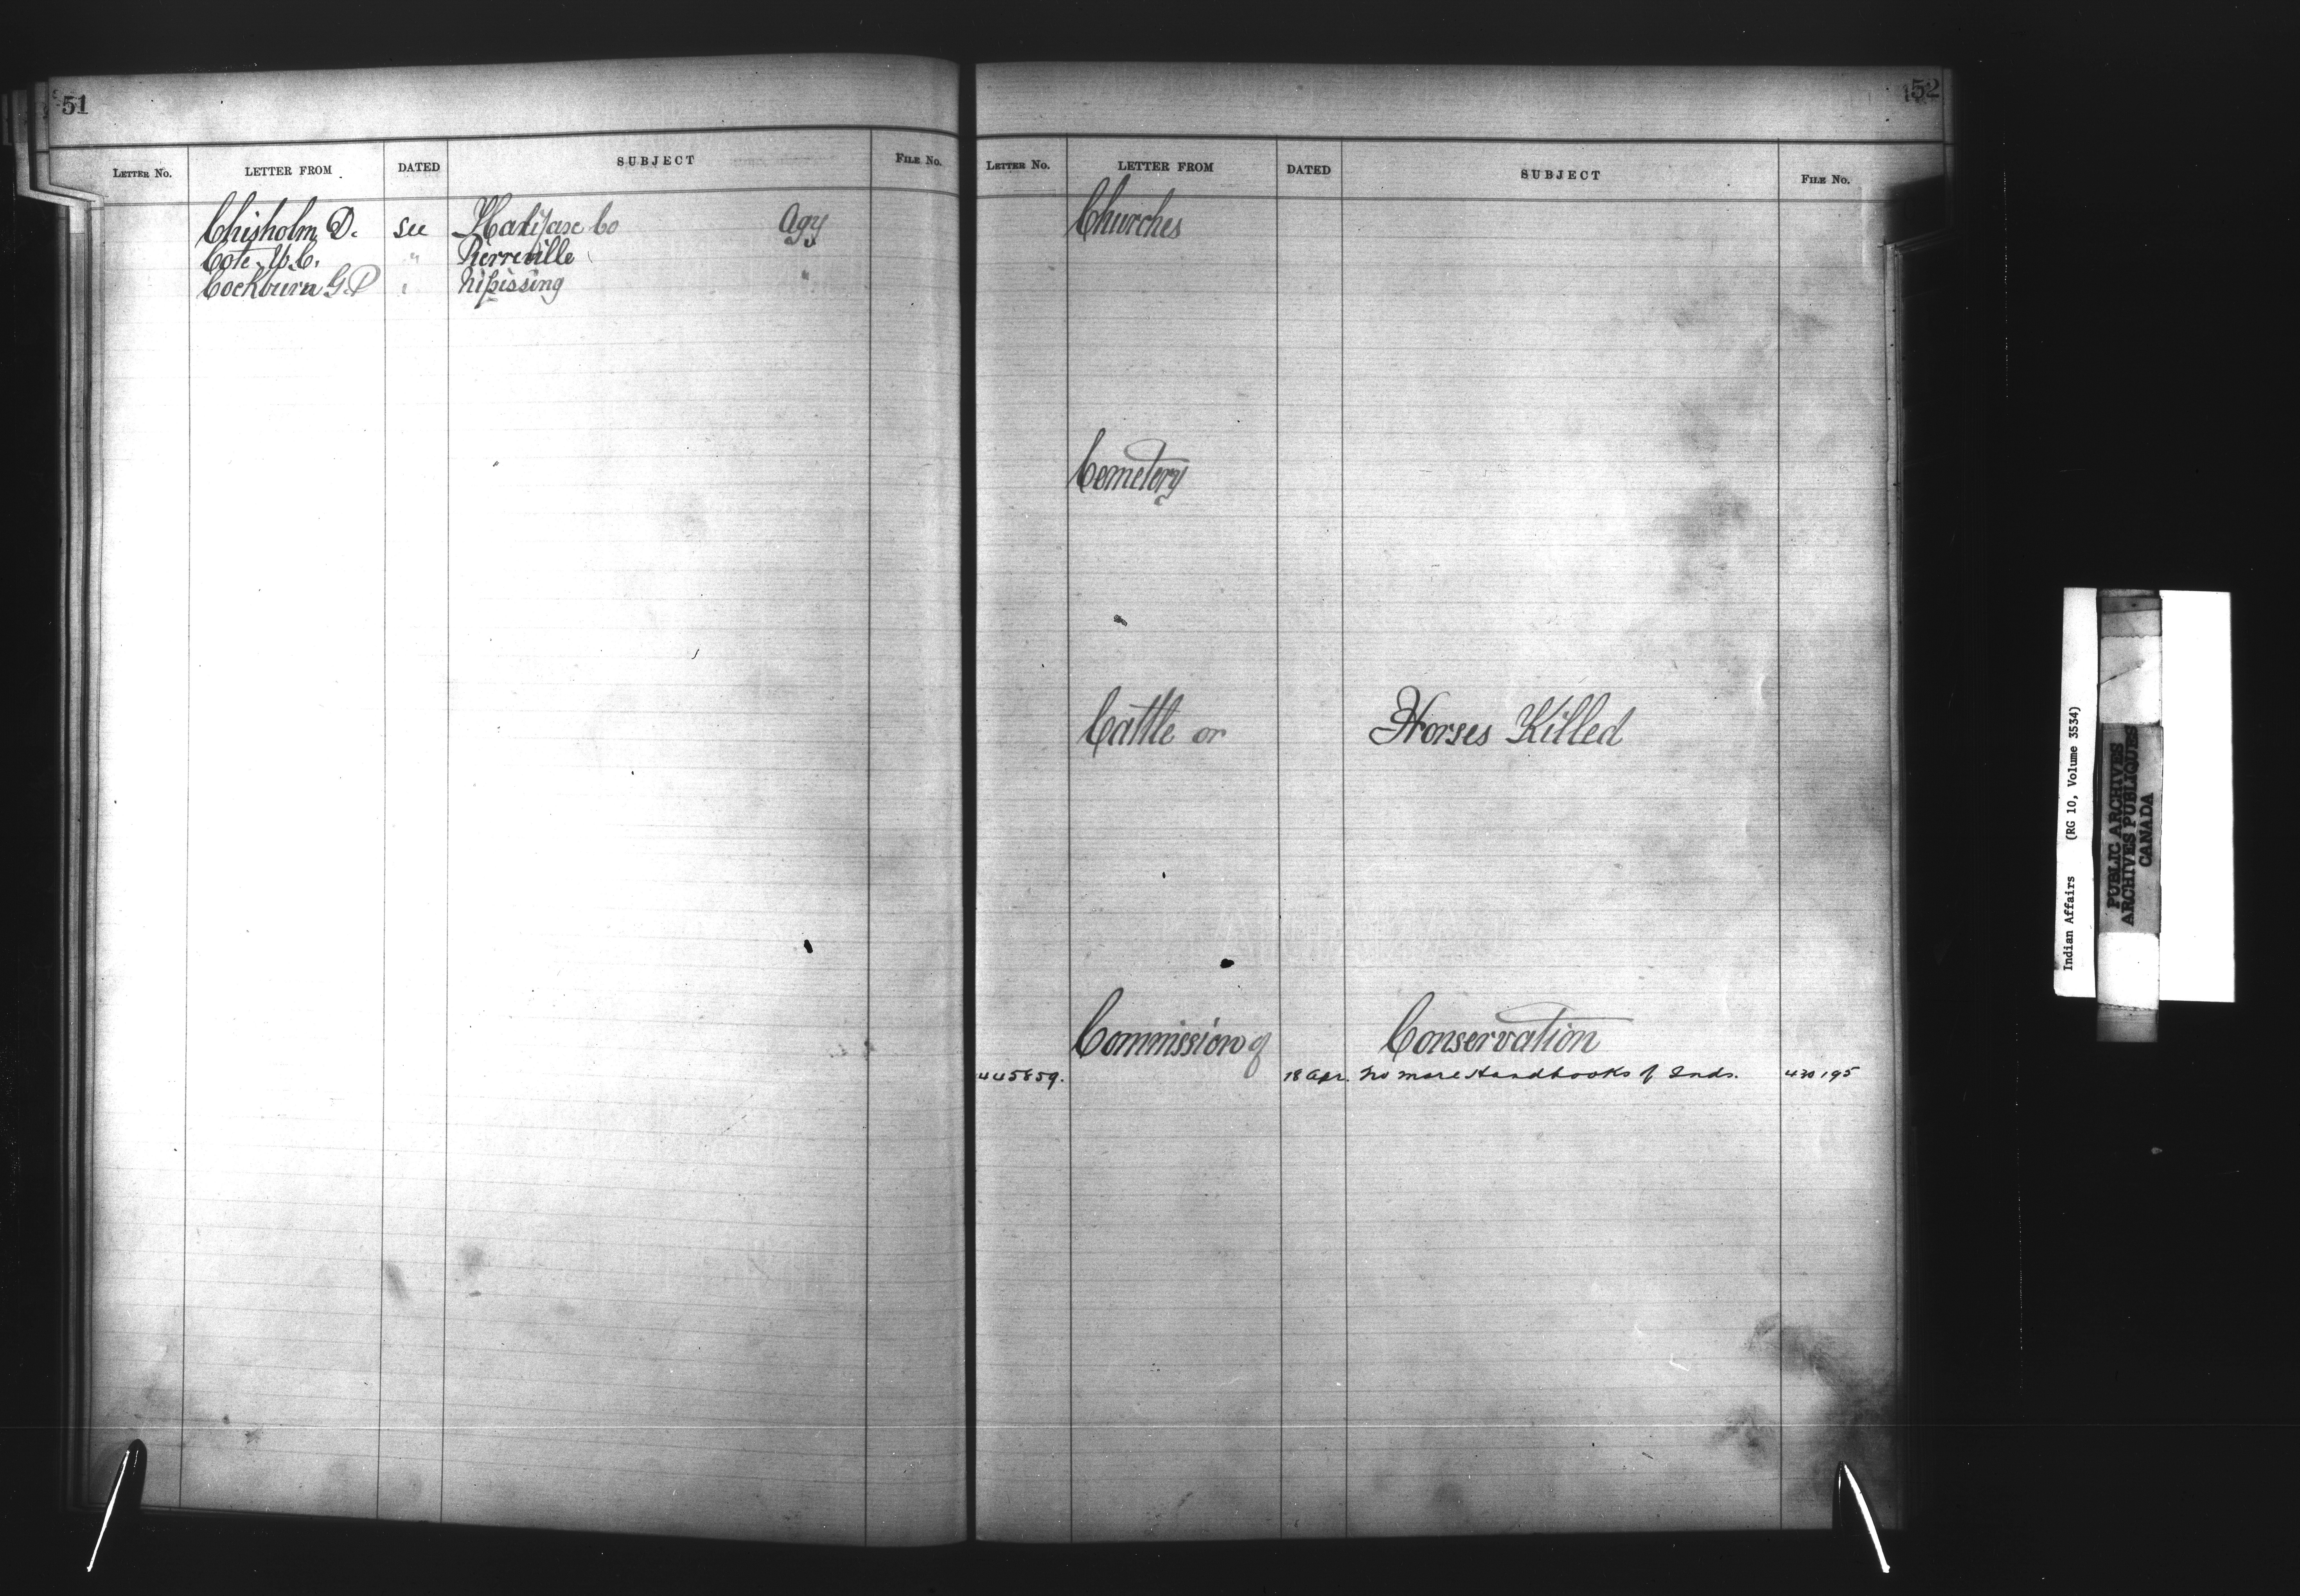 51
LETTER NO. LETTER FROM DATED SUBJECT FILE NO.
Chisholm D. see Halifax Co Agy
Cote C. " Pierreville
Cockburn G.P " Nipissing "
52
LETTER NO. LETTER FROM DATED SUBJECT FILE NO.
Churches
Cemetery
Cattle or Horses Killed
Commission of Conservation
445859. 18 Apr. No more Handbooks of Inds. 430195
Indian Affairs (RG 10, Volume 3534)
PUBLIC ARCHIVES
ARCHIVES PUBLIQUES
CANADA